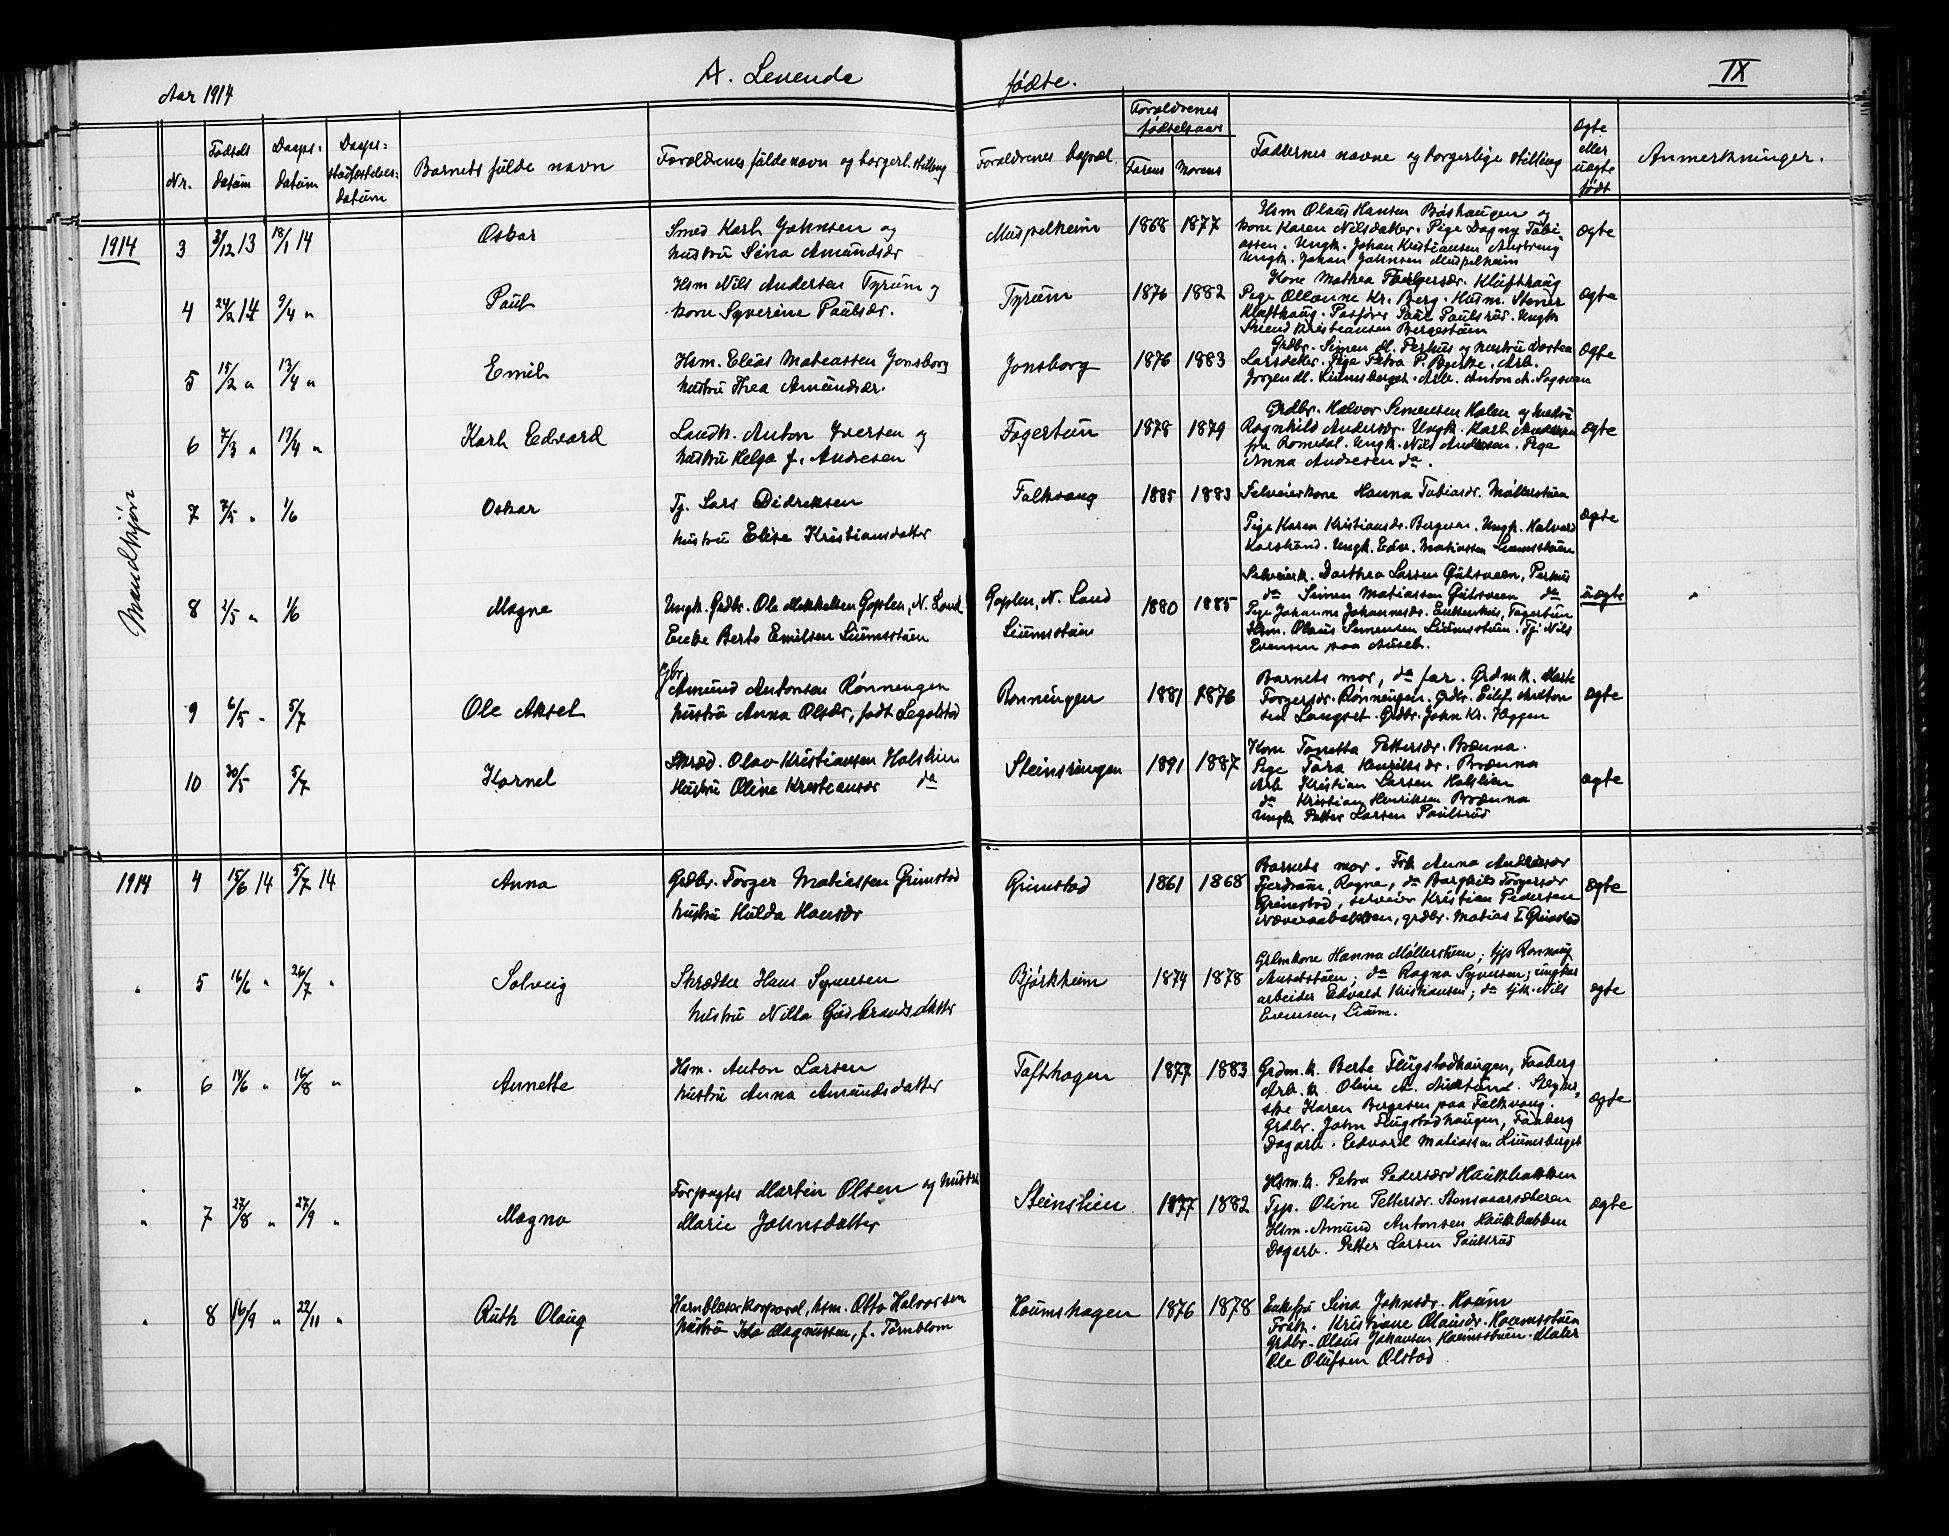 Aar 1914
A. Levende
fødte.
IX
Nr.
Fødsels datum
Daaps- datum
Daaps- stadfæstelses- datum
Barnets fulde navn
Forældrenes fulde navn og borgerl. stilling
Forældrenes bopæl.
Forældrenes fødselsaar
Farens
Morens
Faddernes navne og borgerlige stilling
Ægte eller uægte født
Anmerkninger.
Mandkjøn
1914 3 3/12 13 18/1 14 Oskar
Smed Karl Johnsen og
hustru Sina Amundsdr
Muspelheim 1868 1877
Hsm Olaus Hansen Båshaugen og
kone Karen Nilsdatter. Pige Dagny Tobi-
assen. Ungk. Johan Kristiansen Austreng
Ungk. Johan Johnsen Muspelheim
ægte
4 24/2 14 9/4 " Paul
Hsm Nils Andersen Tyrum og
kone Syverine Paulsdr.
Tyrum 1876 1882
Kone Mathea Klufthaug
Pige Kr. Berg. Husm. Stener
Klufthaug. Paulsrud. Ungk
Svend Kristiansen Bergestuen
ægte
5 15/2 " 13/4 " Emil
Hsm. Elias Mateassen Jonsborg
hustru Thea Amundsdr.
Jonsborg 1876 1883
Grdbr. Simen M. Perhus og hustru Dortea
Larsdatter. Pige Petra P. Bjerke. Arb.
Jørgen M. Liumsberget. Arb. Anton A.
ægte
6 7/3 " 13/4 " Karl Edvard
Landh. Anton Iversen og
hustru Helga f. Andresen
Fagertun 1878 1879
Grdbr. Halvor Simensen Holen og hustru
Ragnhild Andersdr. Ungk. Karl Andresen
fra Romedal. Ungk. Nils Andresen. Pige
Anna Andresen do.
ægte
7 3/5 " 1/6 Oskar
Tj. Lars Didriksen
hustru Elise Kristiansdatter
Falkvang 1885 1883
Selveierkone Hanna Tobiasdr. Møllerstuen
Pige Karen Kristiansdr. Bergesen. Ungk. Halvard
Karlstrand. Ungk. Edv. Matiassen Liumsstuen
ægte
8 2/5 " 1/6 Magne
Ungk. Grdbr. Ole Mikkelsen Goplen, N. Land
Enke Berte Emilsen Liumsstuen
Goplen, N. Land
Liumsstuen
1880 1885
Selveierk. Dorthea Larsen Gutsveen, Perhus
do Simen Matiassen Gutsveen do
Pige Johanne Johannesdr. Enkenhus, Fagertun
Hsm. Olaus Simensen Liumsstuen. Tj. Nils
Evensen paa Auseth.
uægte
9 6/5 " 5/7 Ole Aksel
Gbr. Amund Antonsen Rønnengen
hustru Anna Olsdr, født Segalstad
Rønningen 1881 1876
Barnets mor, do far. Grdm.k. Marte
Torgersdr. Rønningen. Grdbr. Eilif Anton
sen Langset. Grdbr. John Kr. Haggen
ægte
10 20/5 5/7 Kornel
Skræd. Olav Kristiansen Holslien
Hustru Oline Kristiansdr do
Steinsringen 1891 1887
Kone Tonetta Pettersdr. Brænna.
Pige Tora Henriksdr. Brænna
Arb Kristian Larsen Holslien
do Kristian Henriksen Brænna
Ungk Petter Larsen Paulsrud
ægte
1914 4 15/6 14 5/7 14 Anna
Grdbr. Torger Matiassen Grimstad
hustru Hulda Hansdr
Grimstad 1861 1868
Barnets mor. Frk Anna Andersdr
Fjerdrum, Ragna, do Borghild Torgersdr
Grimstad, selveier Kristian Pedersen
Næveraabakken, grdbr. Matias T Grimstad
ægte
" 5 16/6 " 26/7 " Solveig
Skrædder Hans Syversen
hustru Nilla Gudbrandsdatter
Bjørkheim 1874 1878
Grdmkone Hanna Møllerstuen; tjp Rønnaug
Ausetstuen; do Ragna Syversen; ungkar
arbeider Edvard Kristiansen; do tjk. Nils
Evensen, Lium.
ægte
" 6 14/6 " 16/8 " Annette
Hsm. Anton Larsen
hustru Anna Amundsdatter
Tofthagen 1877 1883
Grdm.k. Berte Flugstadhaugen, Faaberg
Arb.k. Oline A. Aukelund. Steyer-
ske Karen Bergesen paa Falkvang.
Grdbr. John Flugstadhaugen, Faaberg
Dagarb. Edvard Matiassen Liumsberget
ægte
" 7 27/8 " 27/9 " Magna
Forpagter Martin Olsen og hustru
Marie Johnsdatter
Steinslien 1877 1882
Hsm.k. Petra Pedersdr Haukbakken
Tjp. Oline Pettersdr. Stensaarsæteren
Hsm. Amund Antonsen Haukbakken
Dagarb. Petter Larsen Paulsrud
ægte
" 8 16/9 " 22/11 " Ruth Olaug
Hornblæserkorporal, hsm. Otto Halvorsen
hustru Ida Magnussen, f. Törnblom
Houmshagen 1876 1878
Enkefru Sina Johnsdr. Houm
Frøk. Kristiane Olausdr. Houmsstuen
Grdbr. Olaus Johansen Houmsstuen. Maler
Ole Olufsen Olstad